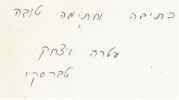 כתיבה וחתימה טובה
עטרה ויצחק
טברסקי